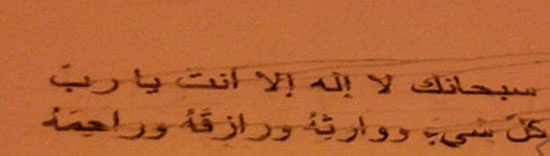 سبحانك لا إله إلا أنت يا ربّ
كلّ شيءٍ ووارثهُ ورازقَهُ وراحِمَهُ